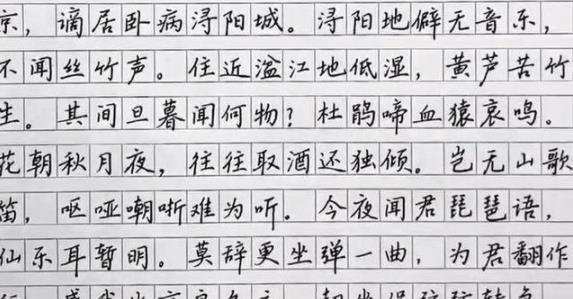 京，谪居卧病浔阳城。浔阳地僻无音乐，
不闻丝竹声。住近湓江地低湿，黄芦苦竹
生。其间旦暮闻何物？杜鹃啼血猿哀鸣。
花朝秋月夜，往往取酒还独倾。岂无山歌
笛，呕哑嘲哳难为听。今夜闻君琵琶语，
仙乐耳暂明。莫辞更坐弹一曲，为君翻作